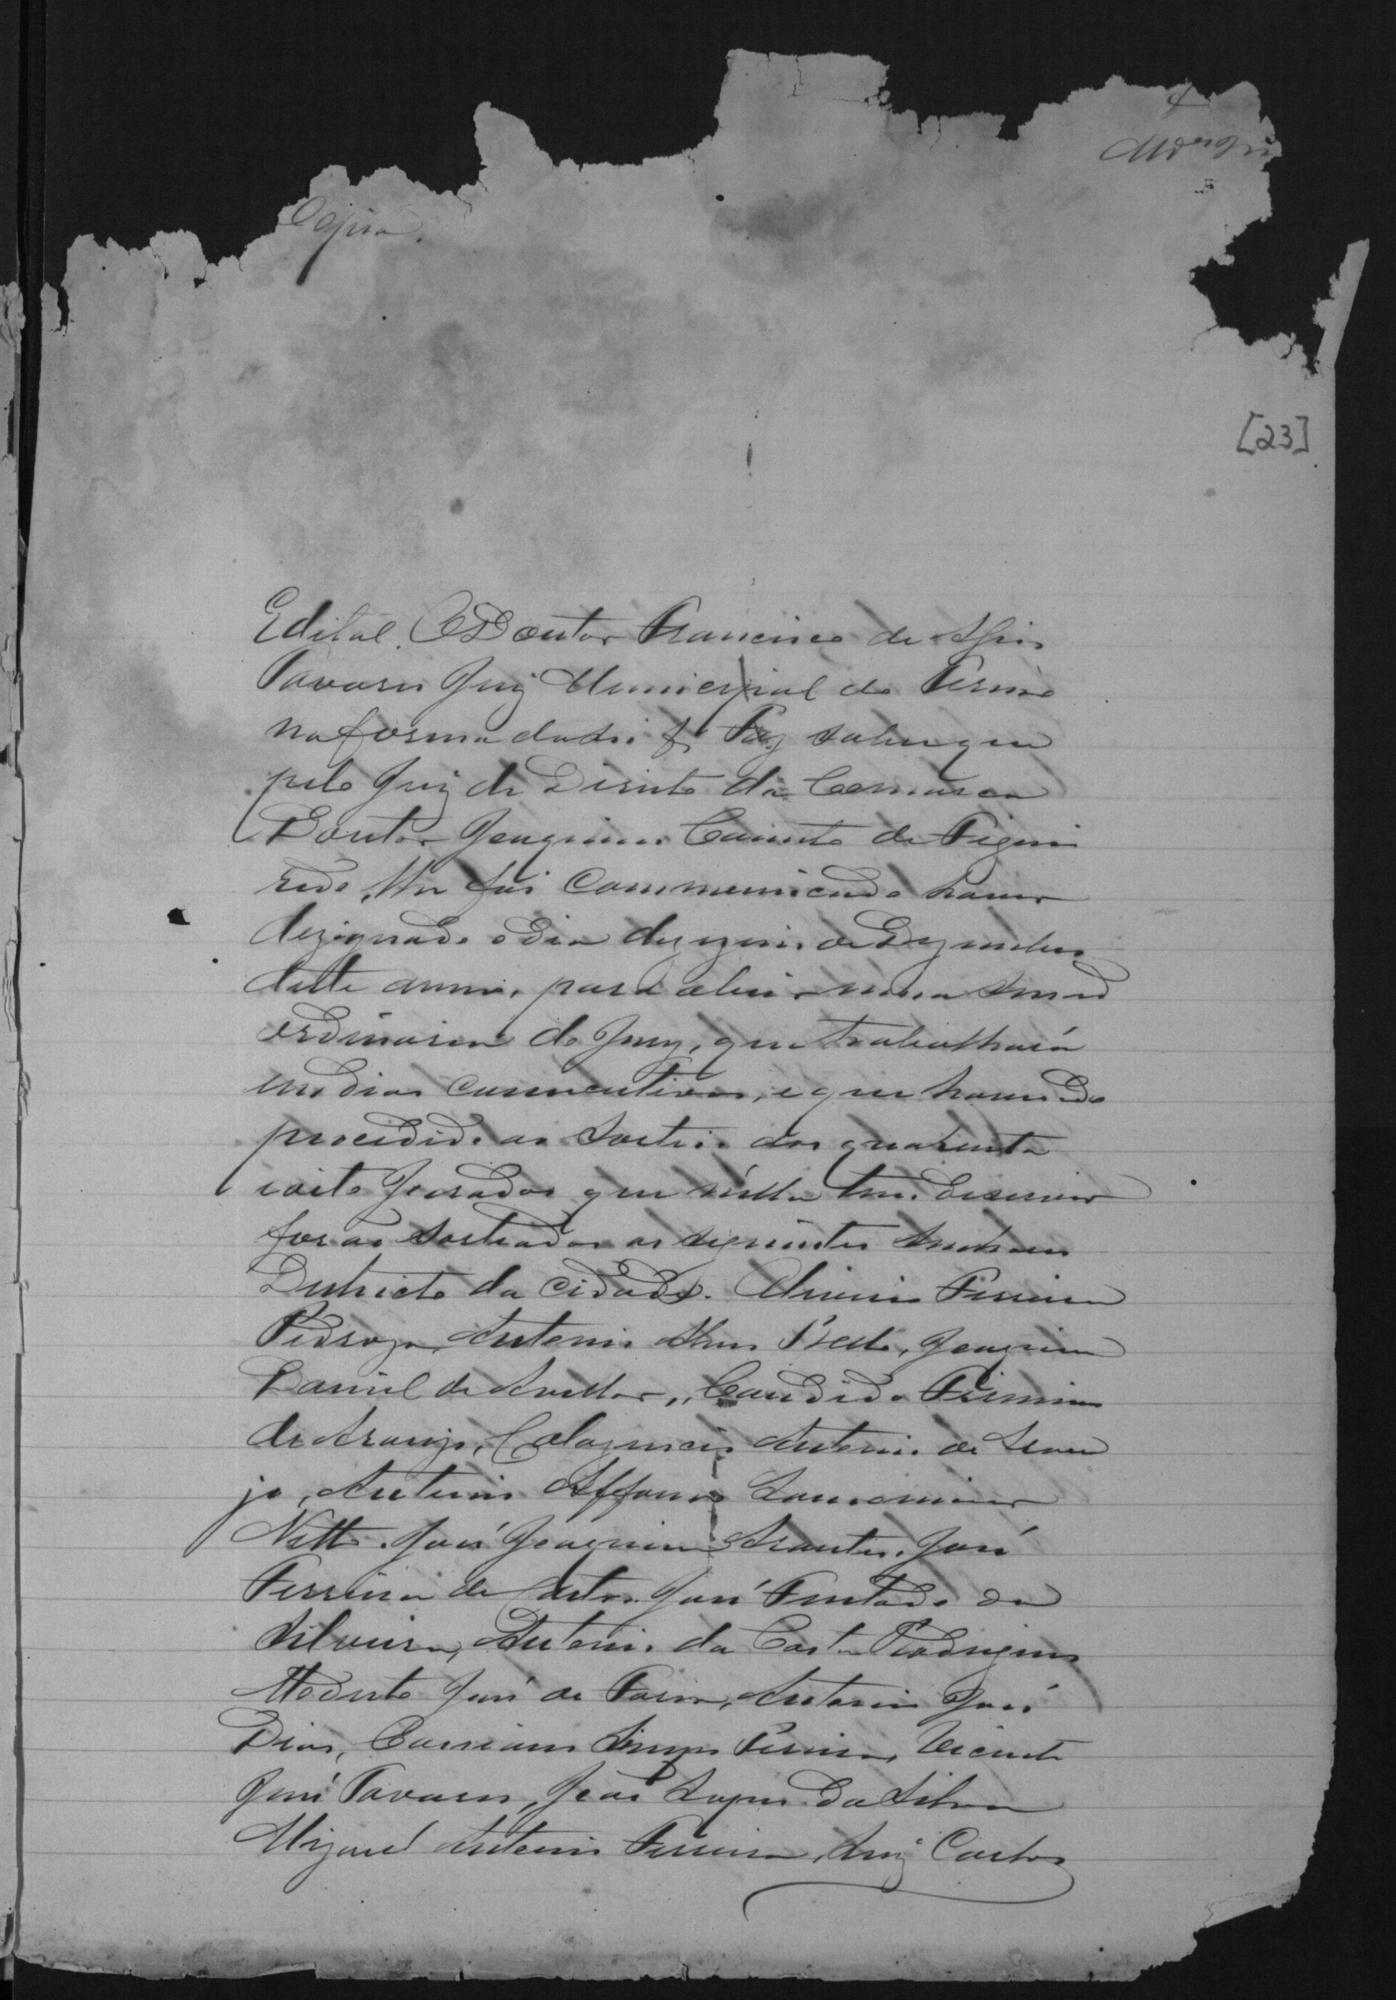 4
Copia.
[23]
Edital. O Doutor Francisco de Assis
Tavares Juiz Municipal do Termo
na forma da Lei &. Faz saber que
pelo Juiz de Direito da Comarca
Doutor Joaquim de Figuei
redo, lhe foi communicado haver
dezignado o dia dezeseis de Dezembro
deste anno, para abrir a
ordinaria do Jury, que trabalhará
em dias consecutivos, e que havendo
procedido ao Sorteio dos quarenta
e oito Jurados que n'ella tem de servir
forão Sorteados os seguintes Senhores
Districto da Cidade. Ferreira
Pedroza, Antonio Alves Joaquim
Daniel de Avellar, Candido Firmino
de Araujo, Antonio de Arau
jo, Antonio Affonso
Netto. José Joaquim Arantes. José
Ferreira de Castro. José Furtado da
Silveira, Antonio da Costa Rodrigues
Modesto José de Faria, Antonio José
Dias, Pereira, Vicente
José Tavares, João Lopes da Silva
Miguel Antonio Ferreira, Luiz Carlos